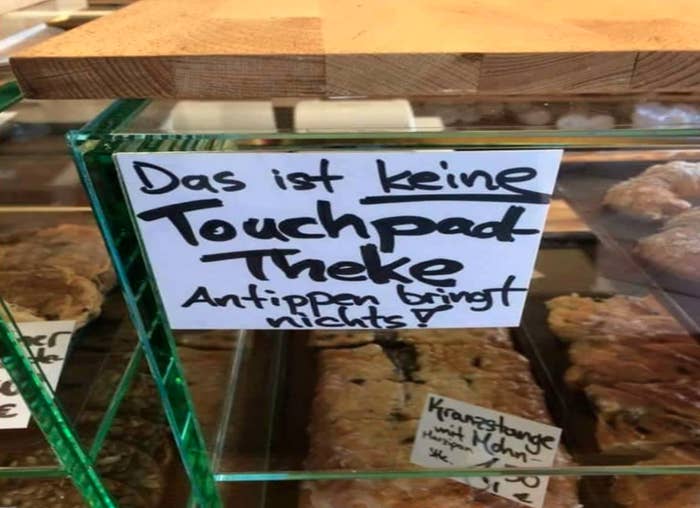 Das ist keine
Touchpad-
Theke
Antippen bringt
nichts!
Kranzstange
mit Mohn-
Marzipan
Stk.
€